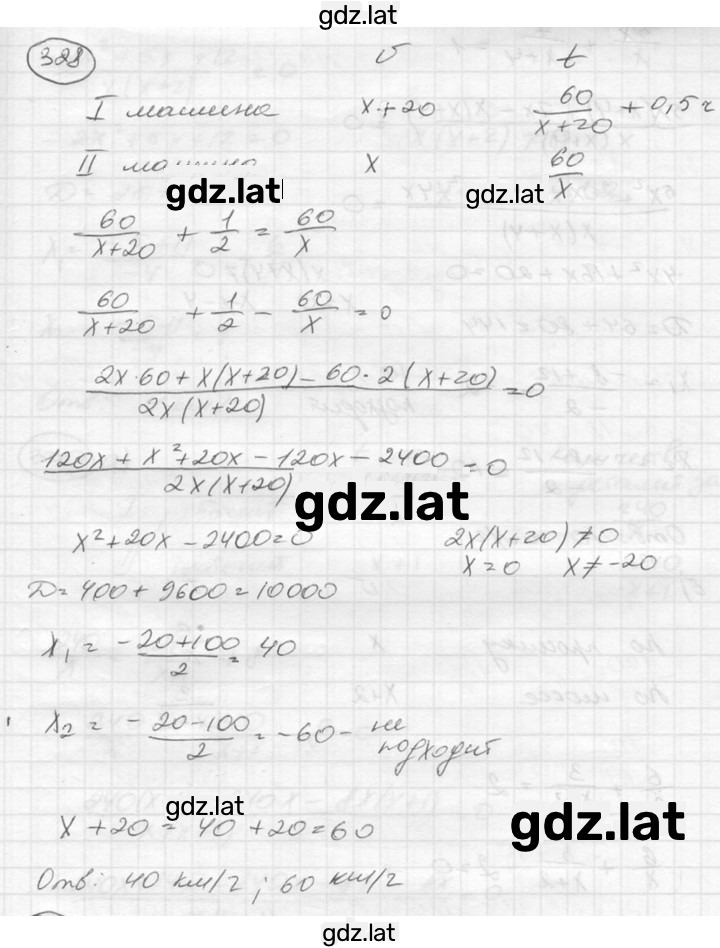 gdz.lat
328 v t
I машина x+20 60/(x+20) + 0,5 ч
II x 60/x
gdz.lat gdz.lat
60/(x+20) + 1/2 = 60/x
60/(x+20) + 1/2 - 60/x = 0
(2x·60+x(x+20)-60·2(x+20))/(2x(x+20)) = 0
(120x+x²+20x-120x-2400)/(2x(x+20)) = 0
gdz.lat
x²+20x-2400=0 2x(x+20)≠0
x=0 x≠-20
D=400+9600=10000
x₁ = (-20+100)/2 = 40
x₂ = (-20-100)/2 = -60 - не подходит
gdz.lat
x+20=40+20=60
gdz.lat
Отв: 40 км/ч; 60 км/ч
gdz.lat